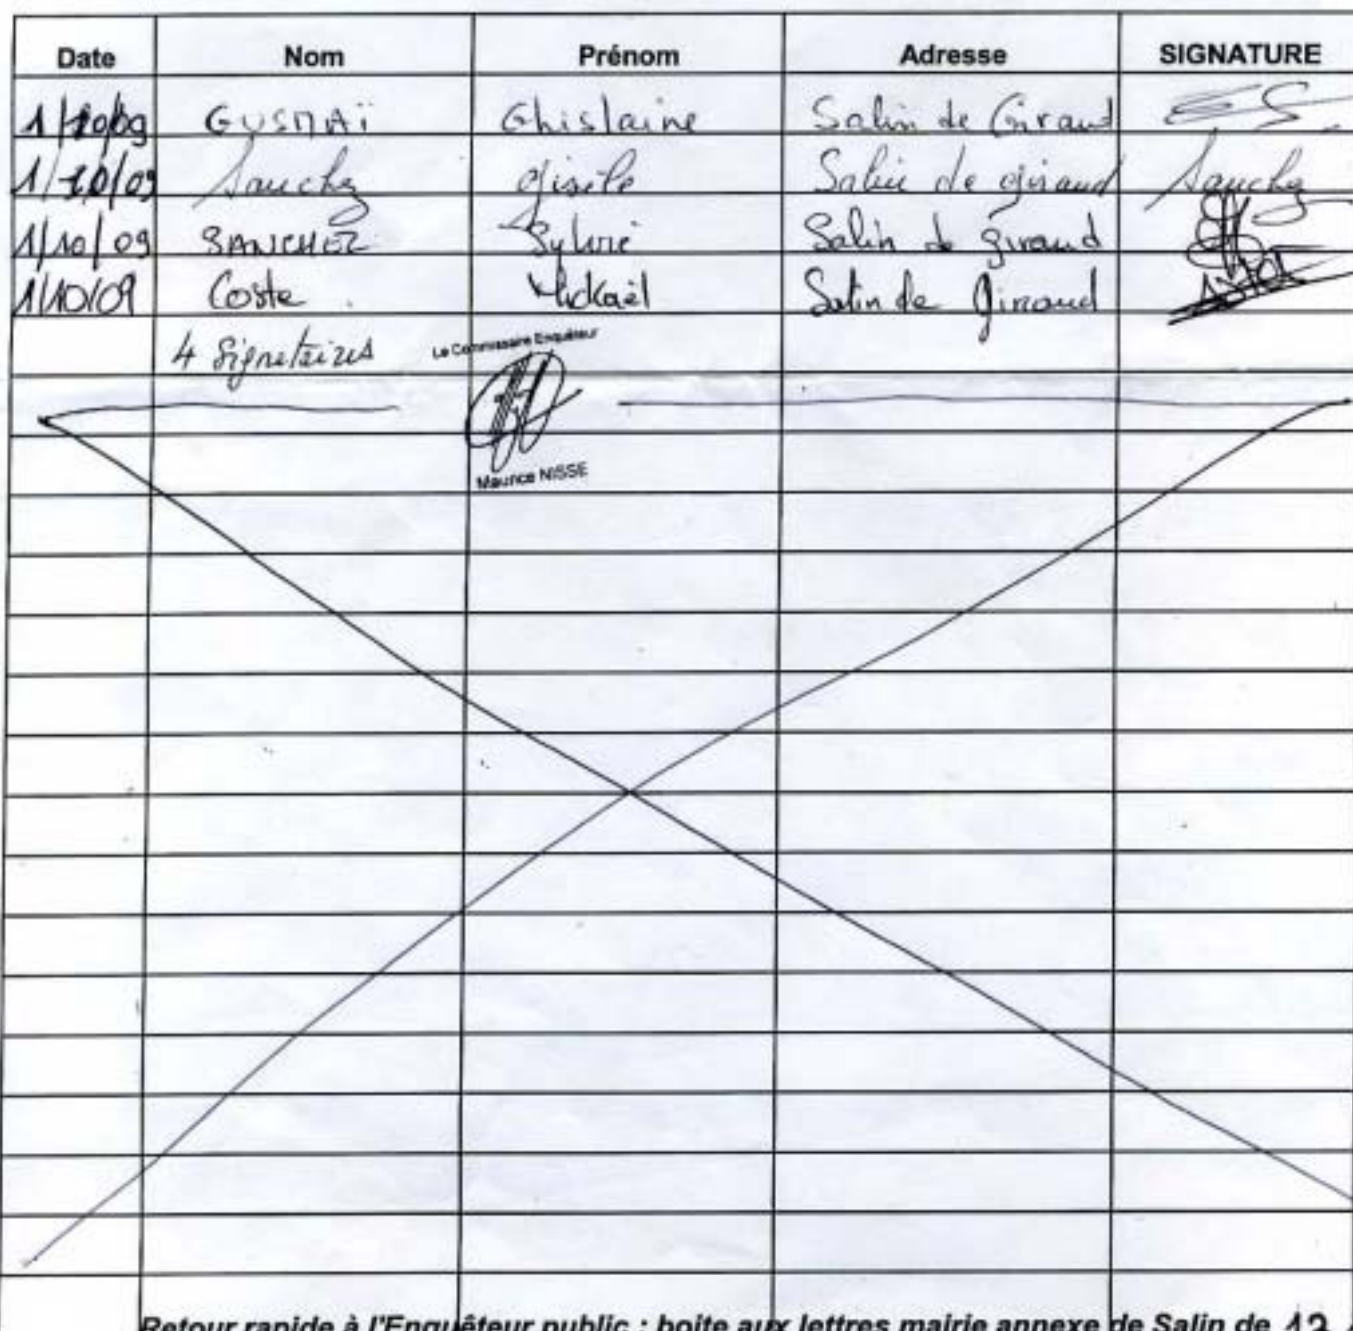 Date Nom Prénom Adresse SIGNATURE
1/10/09 GUSMAÏ Ghislaine Salin de Giraud
1/10/09 Sanchez gisèle Salin de giraud Sanchez
1/10/09 SANCHEZ Sylvie Salin de giraud
1/10/09 Coste Mickaël Salin de Giraud
4 Signataires
Le Commissaire Enquêteur
Maurice NISSE
Retour rapide à l'Enquêteur public : boite aux lettres mairie annexe de Salin de